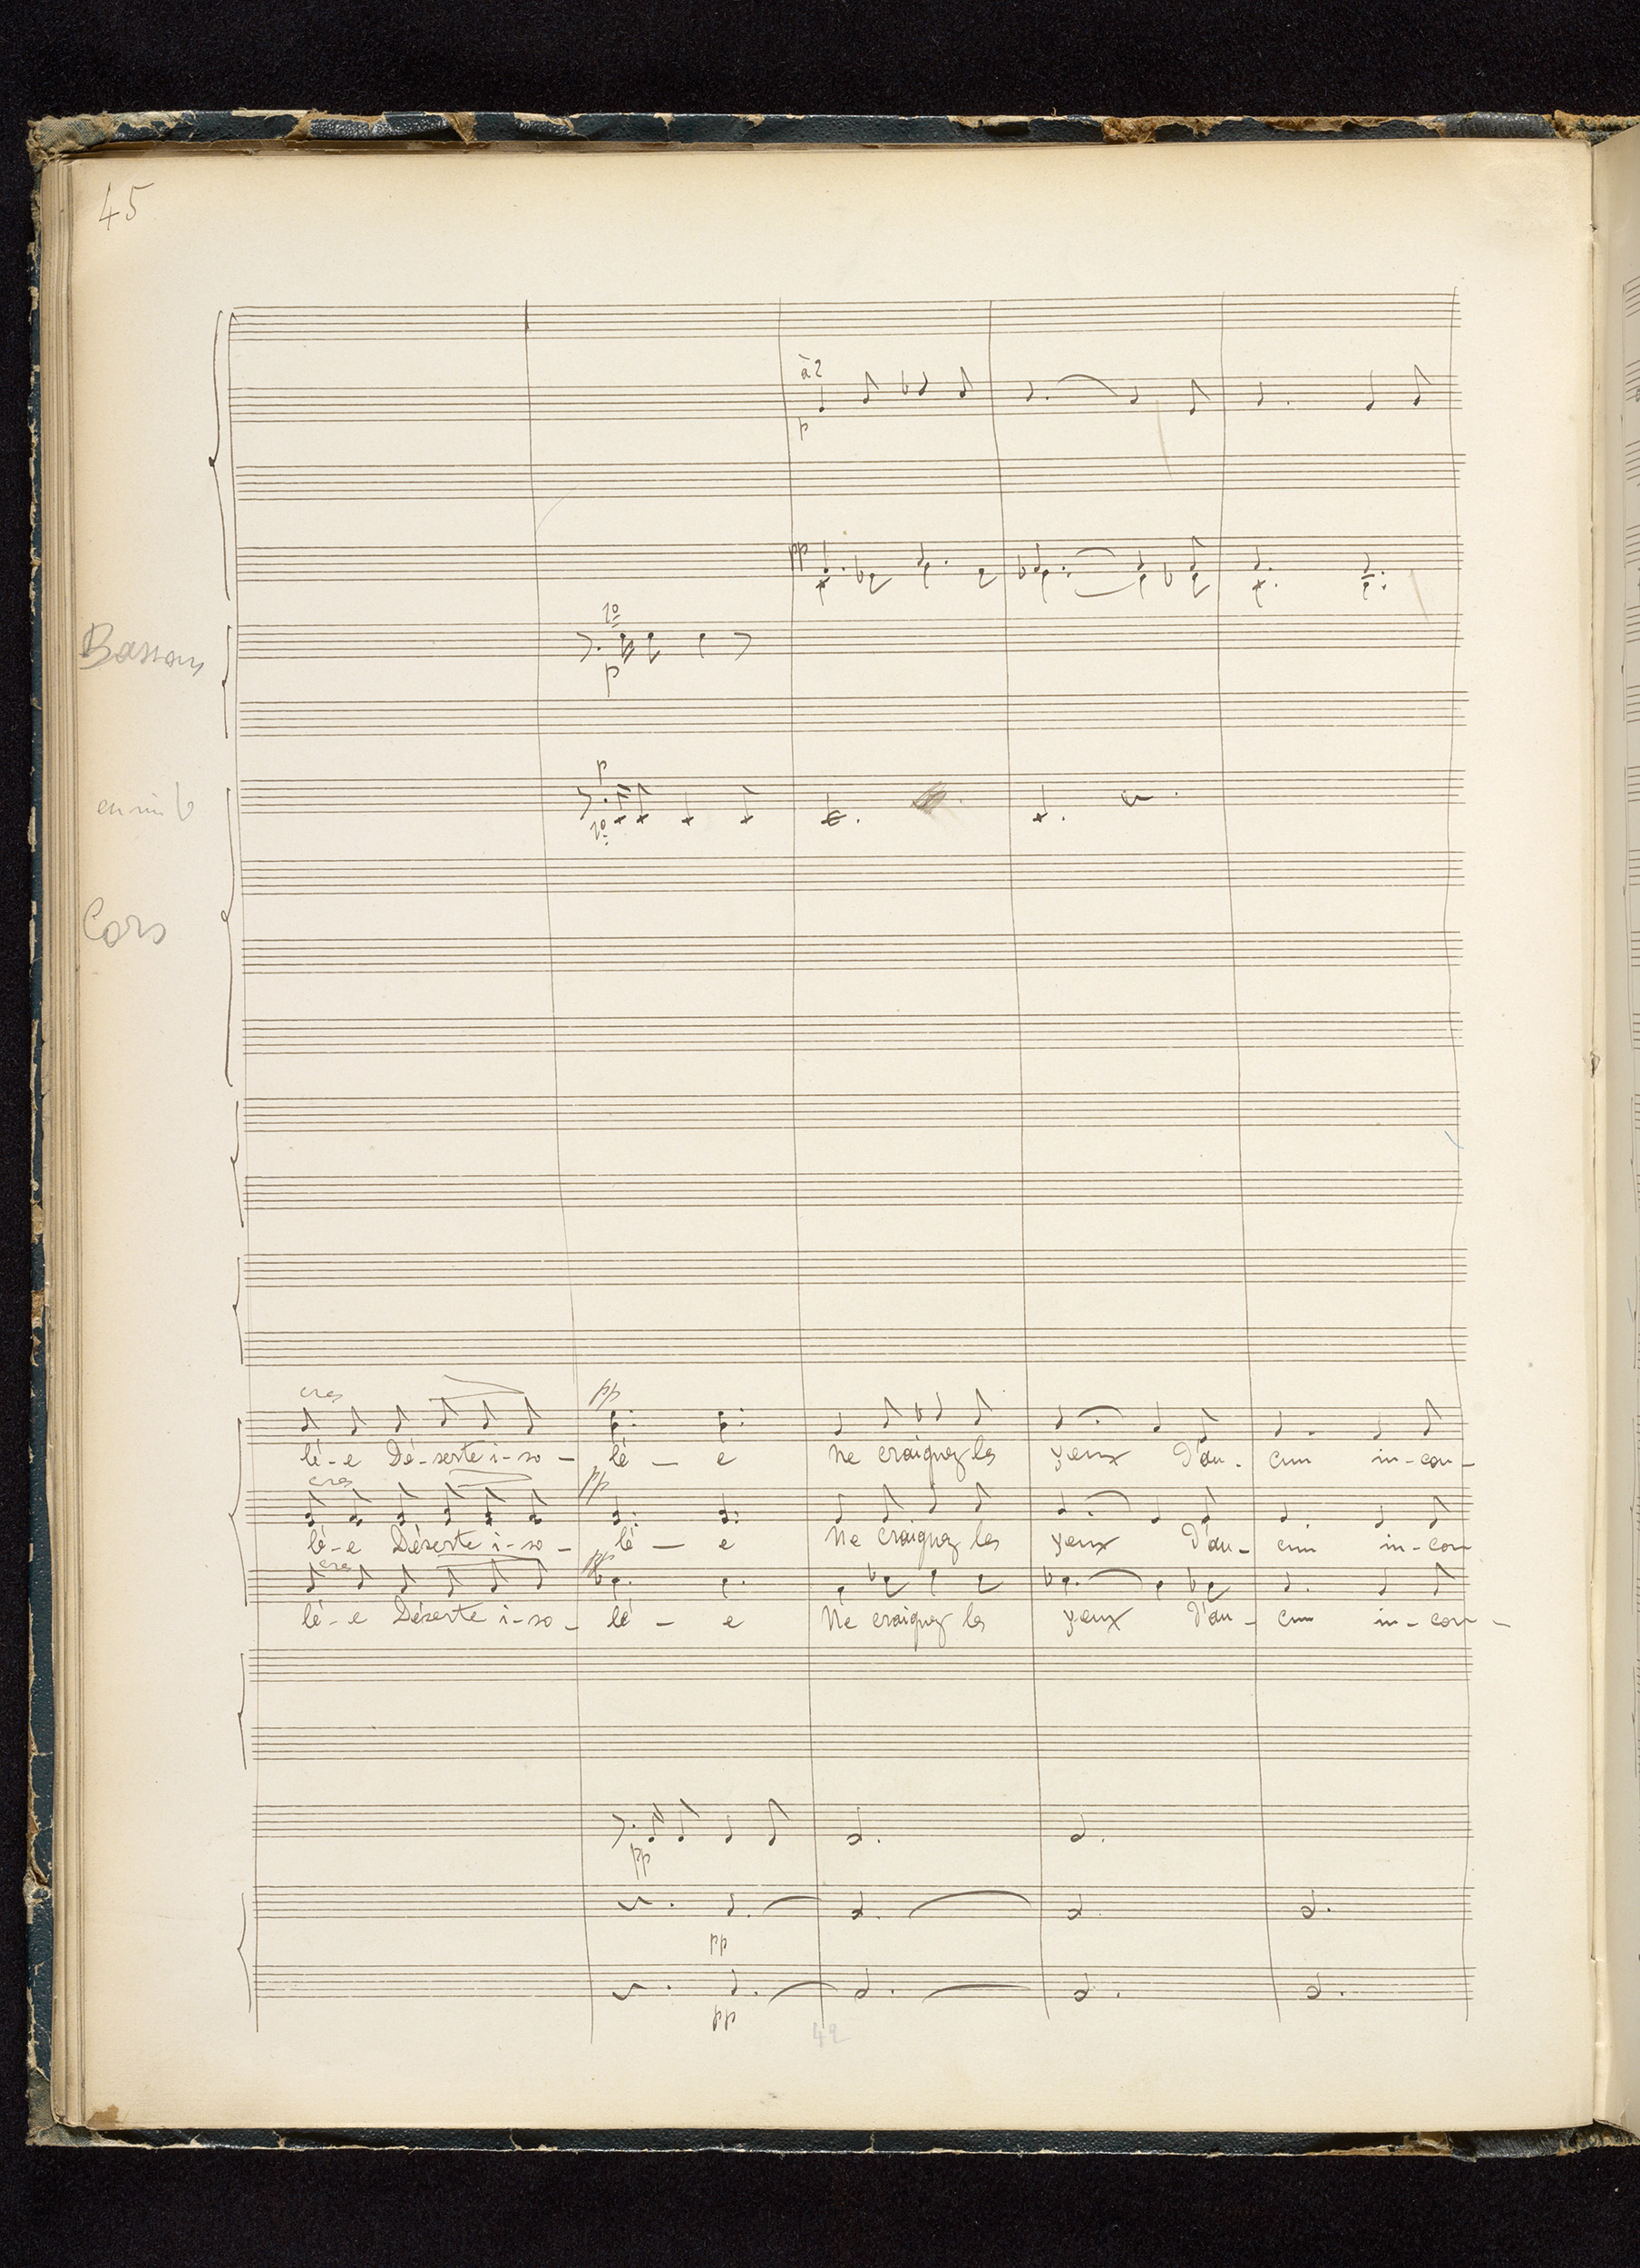 45
à 2
p
pp
1o
Bassons
p
p
en mi b
1o
Cors
cres pp
lé-e Dé-serte i-so-lé-e Ne craignez les yeux D'au-cun in-con-
cres pp
lé-e Déserte i-so-lé-e Ne craignez les yeux D'au-cun in-con
cres pp
lé-e Déserte i-so-lé-e Ne craignez les yeux D'au-cun in-con-
pp
pp
pp
42